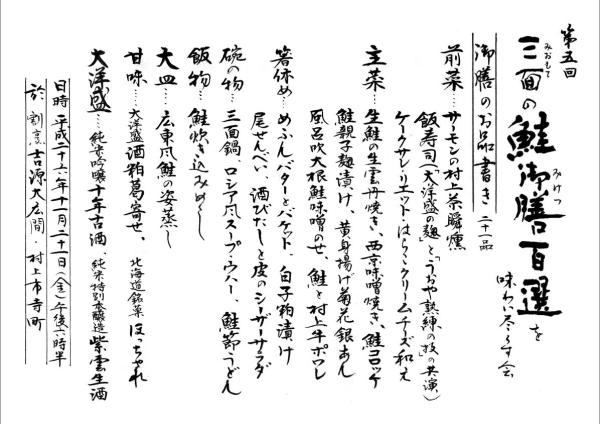 第五回
三面の鮭御膳百選を
みおもて
みけつ
味わい尽くす会
御膳のお品書き 二十一品
前菜…サーモンの村上茶瞬燻
飯寿司(「大洋盛の麹」と「うおや熟練の技」の共演)
ケークサレ・リエットはらこ・クリームチーズ和え
主菜…生鮭の生雲丹焼き、西京味噌焼き、鮭コロッケ
鮭親子麹漬け、黄身揚げ菊花銀あん
風呂吹大根鮭味噌のせ、鮭と村上牛ポワレ
箸休め…めふんバターとバケット、白子粕漬け
尾せんべい、酒びたしと皮のシーザーサラダ
碗の物…三面鍋、ロシア風スープ・ウハー、鮭節うどん
飯物 鮭炊き込みめし
大皿…広東風鮭の姿蒸し
甘味…大洋盛酒粕葛寄せ、北海道銘菓ほっちゃれ
大洋盛…純米吟醸十年古酒、純米特別本醸造紫雲生酒
日時 平成二十六年十一月二十一日(金)午後六時半
於 割烹吉源大広間・村上市寺町